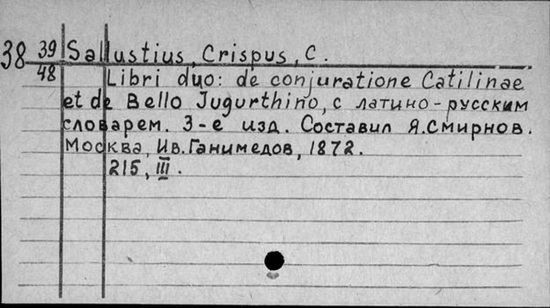 38 39 Sallustius, Crispus, C.
48 Libri duo: de conjuratione Catilinae
et de Bello Jugurthino, с латино-русским
словарем. 3-е изд. Составил Я.Смирнов.
Москва, Ив.Ганимедов, 1872.
215, III.